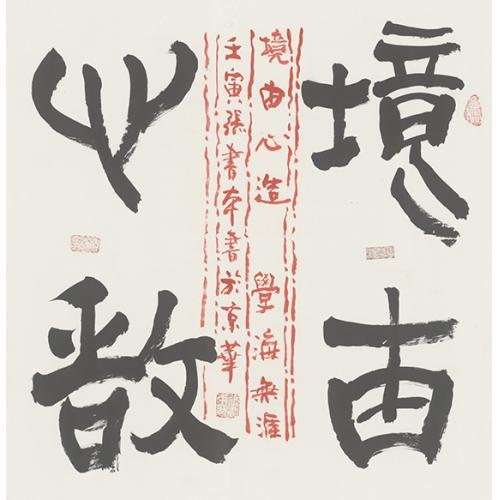 境由
境由心造 學海無涯
壬寅張書本書於京華
心造